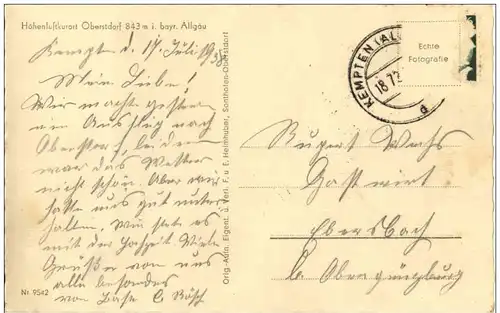 Höhenluftkurort Oberstdorf 843 m i. bayr. Allgäu
Kempten d. 17. Juli 1938.
Mein Liebe!
Wir machten gestern
ein Ausflug nach
Oberstdorf, leider
war das Wetter
nicht schön. Aber wir
hatte uns gut unter
halten. Wie steht es
mit der Hochzeit. Viele
Grüße von uns
alle besonders
von Base C. Rösch
Nr. 9542
Orig.-Aufn. Eigent. u. Verl. F. u. E. Heimhuber, Sonthofen-Oberstdorf
KEMPTEN (AL
18.7.
d
Echte
Fotografie
Rupert Wachs
Gastwirt
Ebersbach
b. Obergünzburg